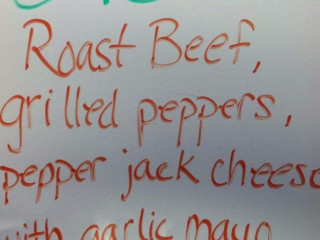 Roast Beef,
grilled peppers,
pepper jack cheese
with garlic mayo